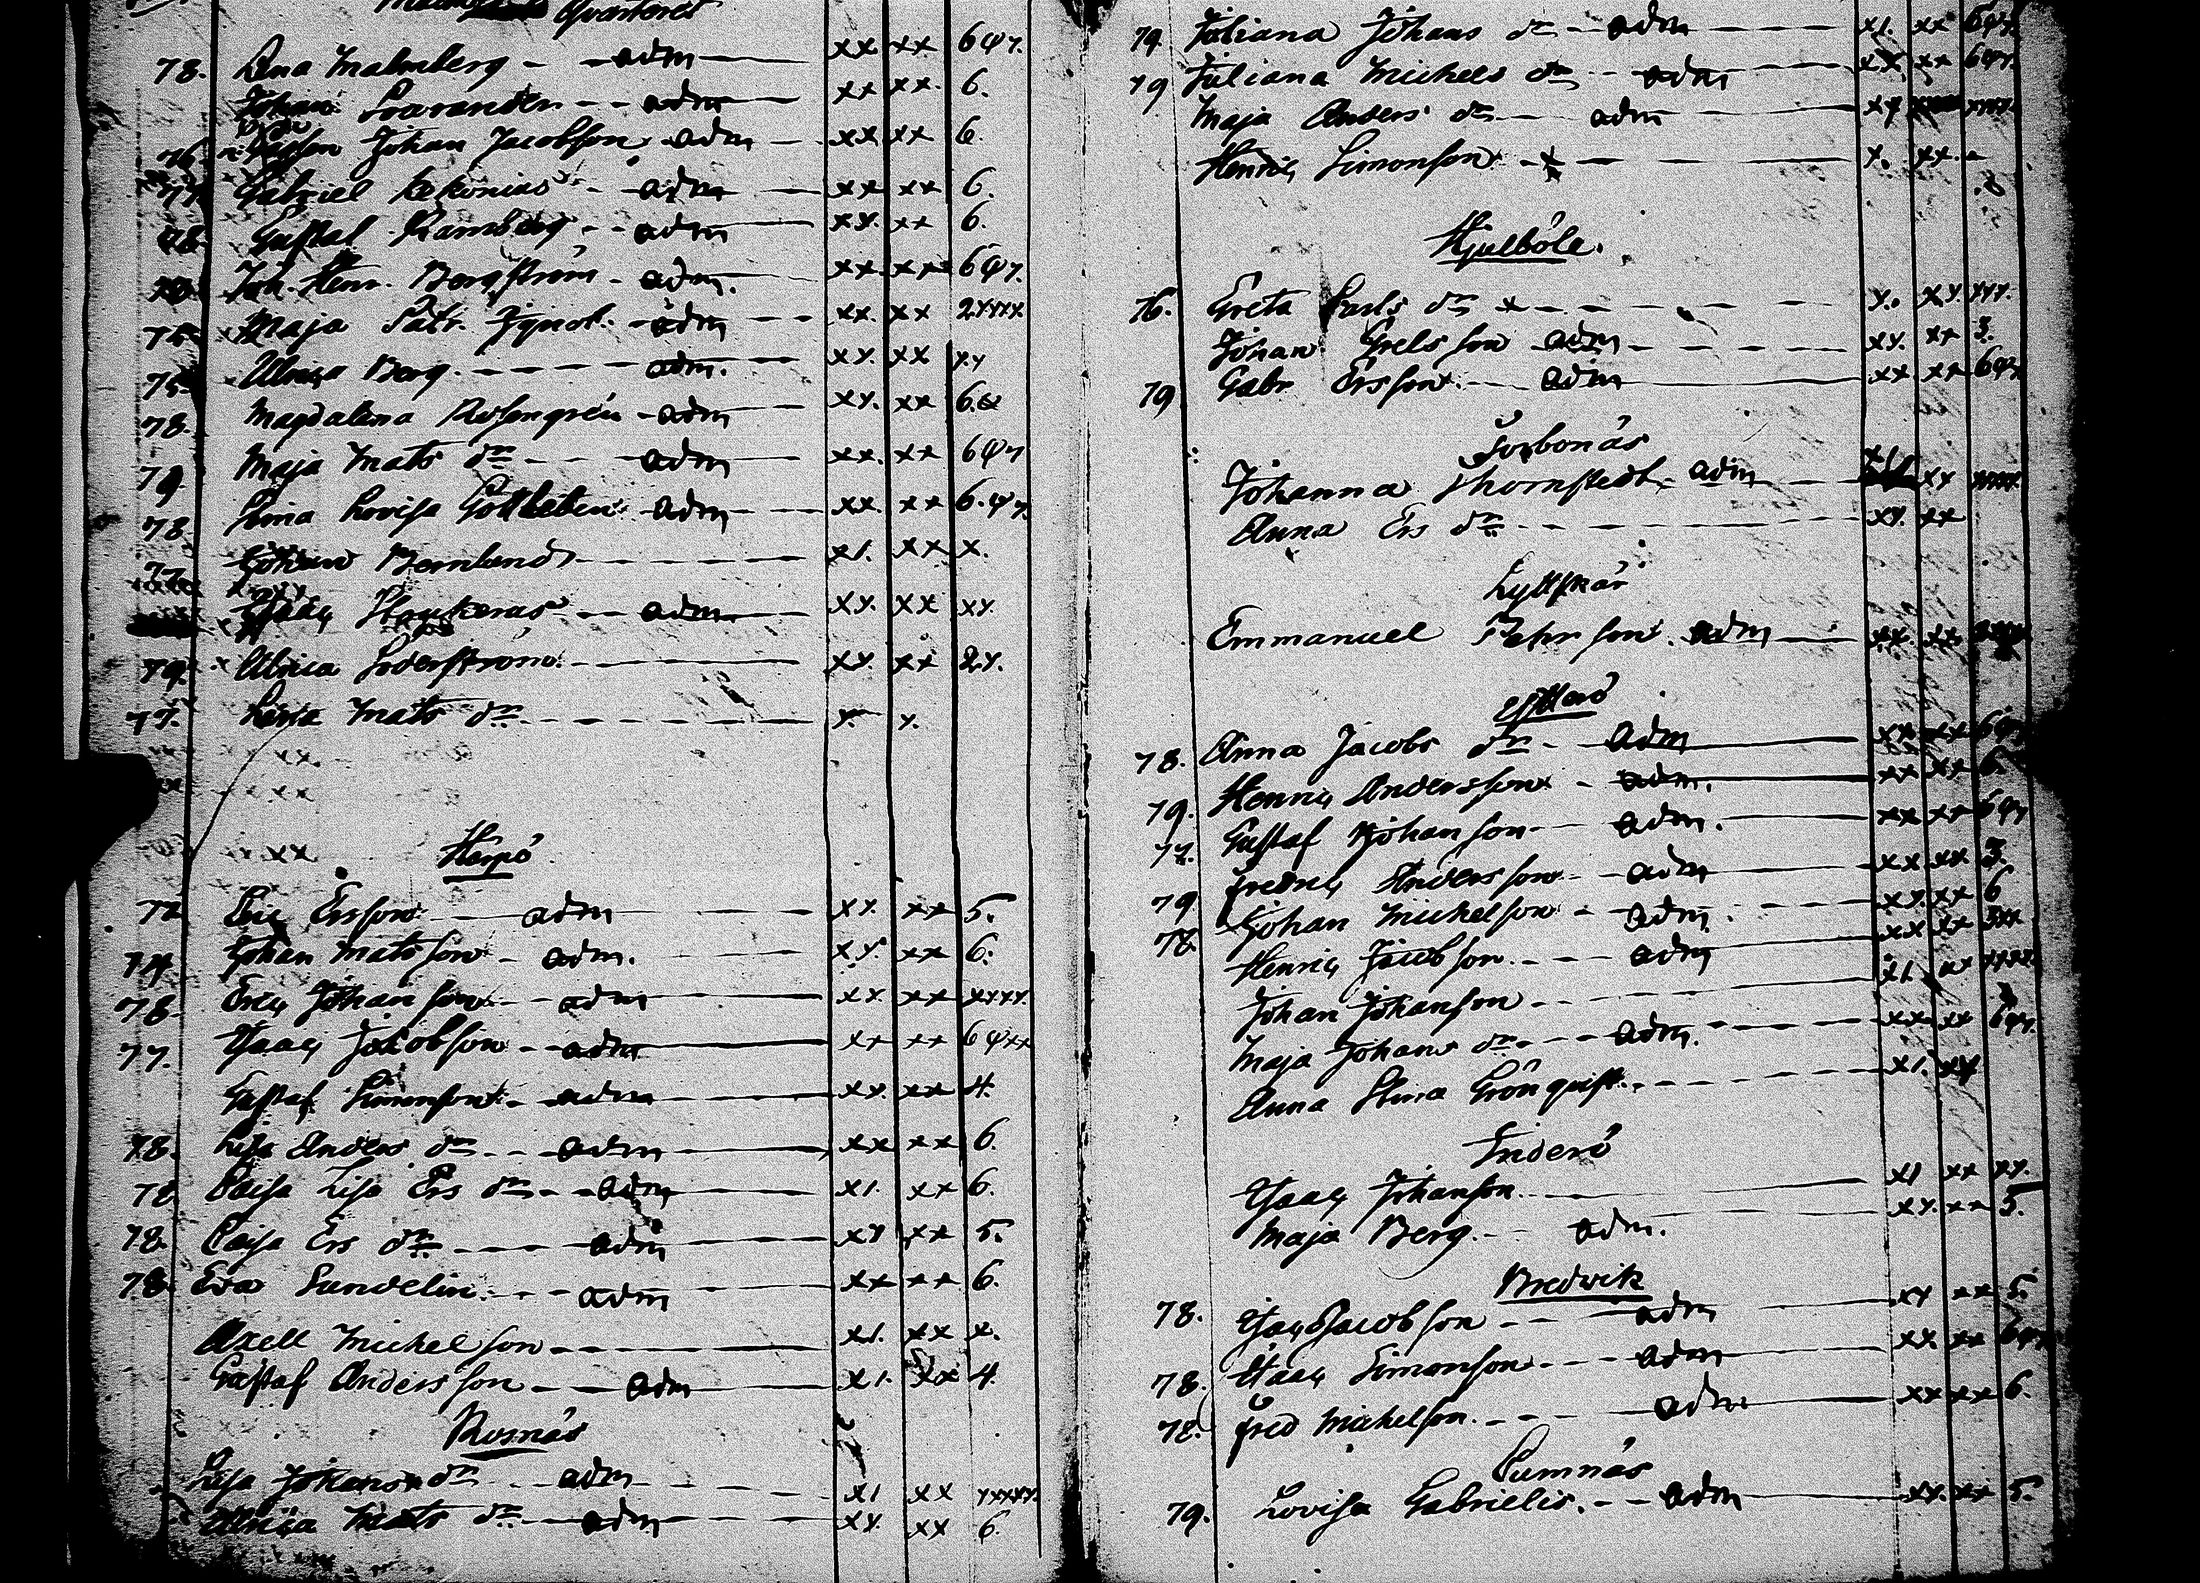 Qvarteret
78. Lena Malmberg - - adm xx. xx 6 φ 7.
Johan - - adm xx xx. 6.
76 Johan Jacobsson adm xx xx 6
77 Gabriel - adm xx xx 6.
78. Gustaf Ramberg - - adm xx. xx 6.
Joh. Henr. Bergström - adm. xx. xx 6 φ 7.
75 x Maja - adm xx. xx 2xxxx
75 Ulrica Berg - - - - adm. xx. xx x.x
78. Magdalena Rosengrén - adm xx. xx 6.
79 Maja Mats dr - - adm xx. xx 6 φ 7
78. Stina Lovisa Gottleben adm xx. xx 6. φ 7.
77 Johan Bernland x1. xx x.
Isaac - - adm xx. xx xx.
79. x Ulrica Söderström xx. xx 2x.
77. Mats dr - - - x. x.
Hämpö
Eric Ersson adm xx. xx 5.
74. Johan Matsson - adm. xx. xx 6.
78. Eric Johansson - adm xx. xx xxxx.
77. Isaac Jacobsson - adm xx xx 6 φ xx
Gustaf Simonsson - adm xx. xx 4.
78. Lisa Anders dr - - adm xx xx 6.
78 Caisa Lisa Ers dr - - adm x1. xx 6.
78. Caisa Ers dr - - adm xx xx 5.
78. Eva Sundelin - - adm xx xx 6.
Axell Michelsson x1. xx x.
Gustaf Andersson - - adm x1. xx 4.
Rosnäs
Lisa Johans dr adm x1 xx xxxxx.
Ulrica Mats dr - adm xx. xx 6
79. Juliana Johans dr - adm x1. xx 6 φ 7.
79 Juliana Michels dr - adm xx. xx 6 φ 7.
Maja Anders dr - adm xx
Henric Simonsson - x x. xx.
Hjulböle.
76. Greta Carls dr x - - - x. xx. xxx.
Johan Grelsson adm xx. xx 3.
79 Gabr Ersson - adm xx xx 6 φ 7
Torbonäs
Johanna Thornstedt - adm xx
Anna Ers dr - - - xx. xx
Lyttskär
Emmanuel Pehrsson. adm xx. xx
78. Anna Jacobs dr - adm xx xx
79. Henric Andersson - adm. xx xx 6.
77. Gustaf Johansson - adm. xx xx 6 φ 7
79 Fredric Andersson - adm xx xx 3.
78 Johan Michelsson - adm. xx. xx 6
Henric Jacobsson - - adm xx xx
Johan Johansson - - x1. xx xxxx.
Maja Johans dr - - adm. xx. xx 6 φ 7.
Anna Stina Grönqvist - - - x1. xx
Enderö
Isaac Johansson x1 xx xx.
Maja Berg - adm. xx. xx 5.
Bredvik
78. Isac Jacobsson - - adm xx xx 5.
78. Isaac Simonsson - - adm xx. xx 6 φ 7.
78. Fred Michelsson - - adm xx xx 6.
Pumnäs
79. Lovisa Gabrielis. - - adm xx. xx 5.